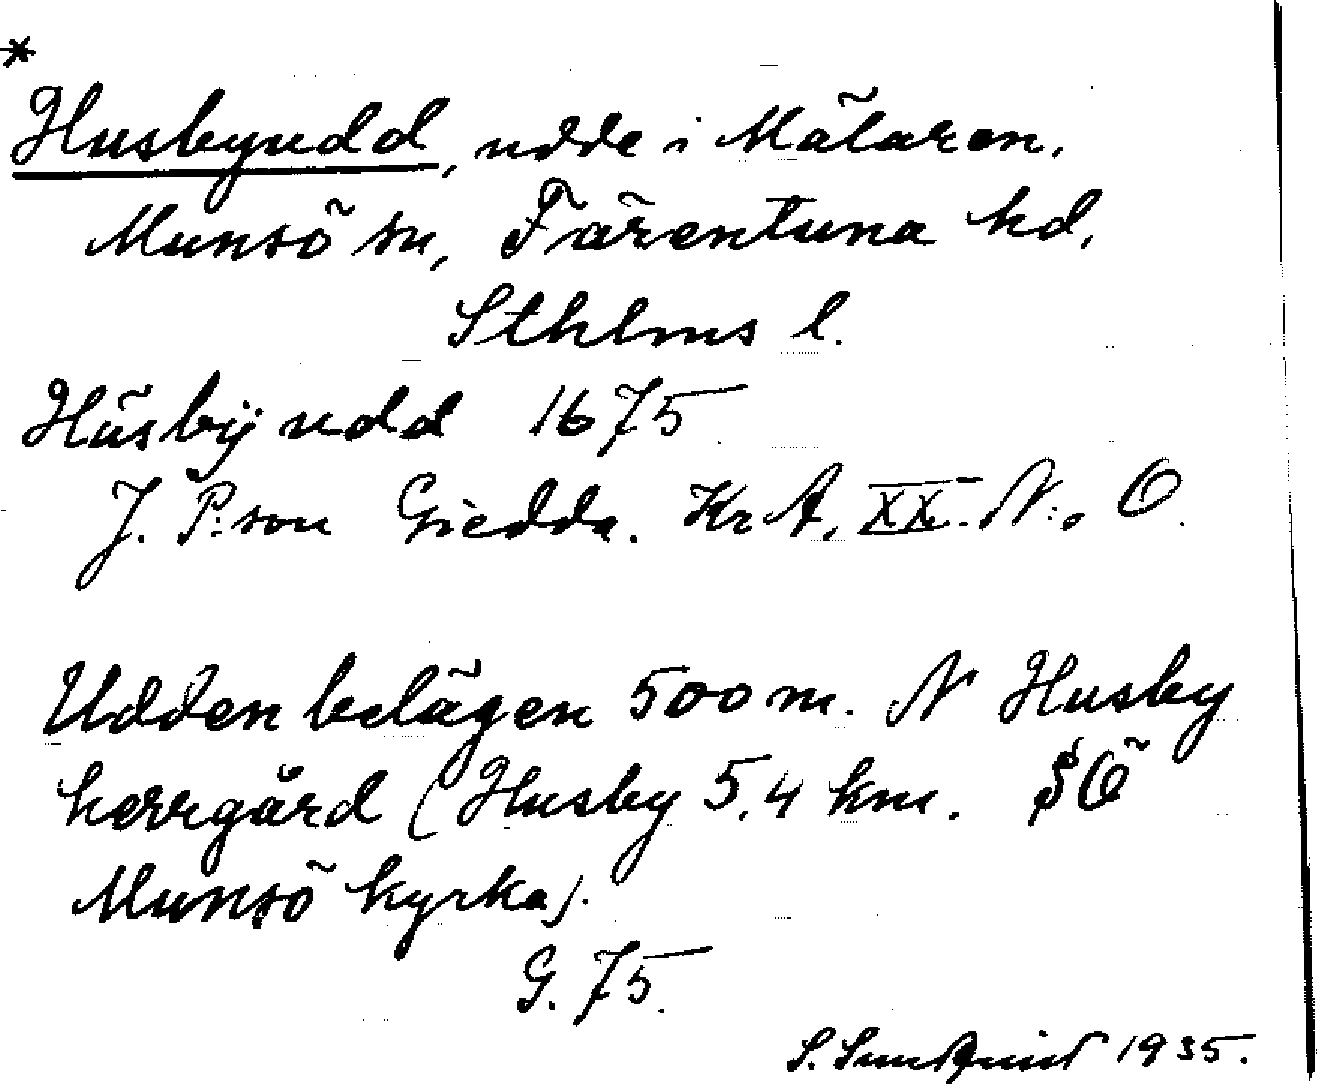 *
Husbyudd, udde i Mälaren,
Munsö sn, Färentuna hd,
Sthlms l.
Hüsbÿ udd 1675
J. P:son Giedda. KrA, XX. N:o O.
Udden belägen 500 m. N Husby
herrgård (Husby 5,4 km. SÖ
Munsö kyrka).
G. 75.
S. Sundquist 1935.